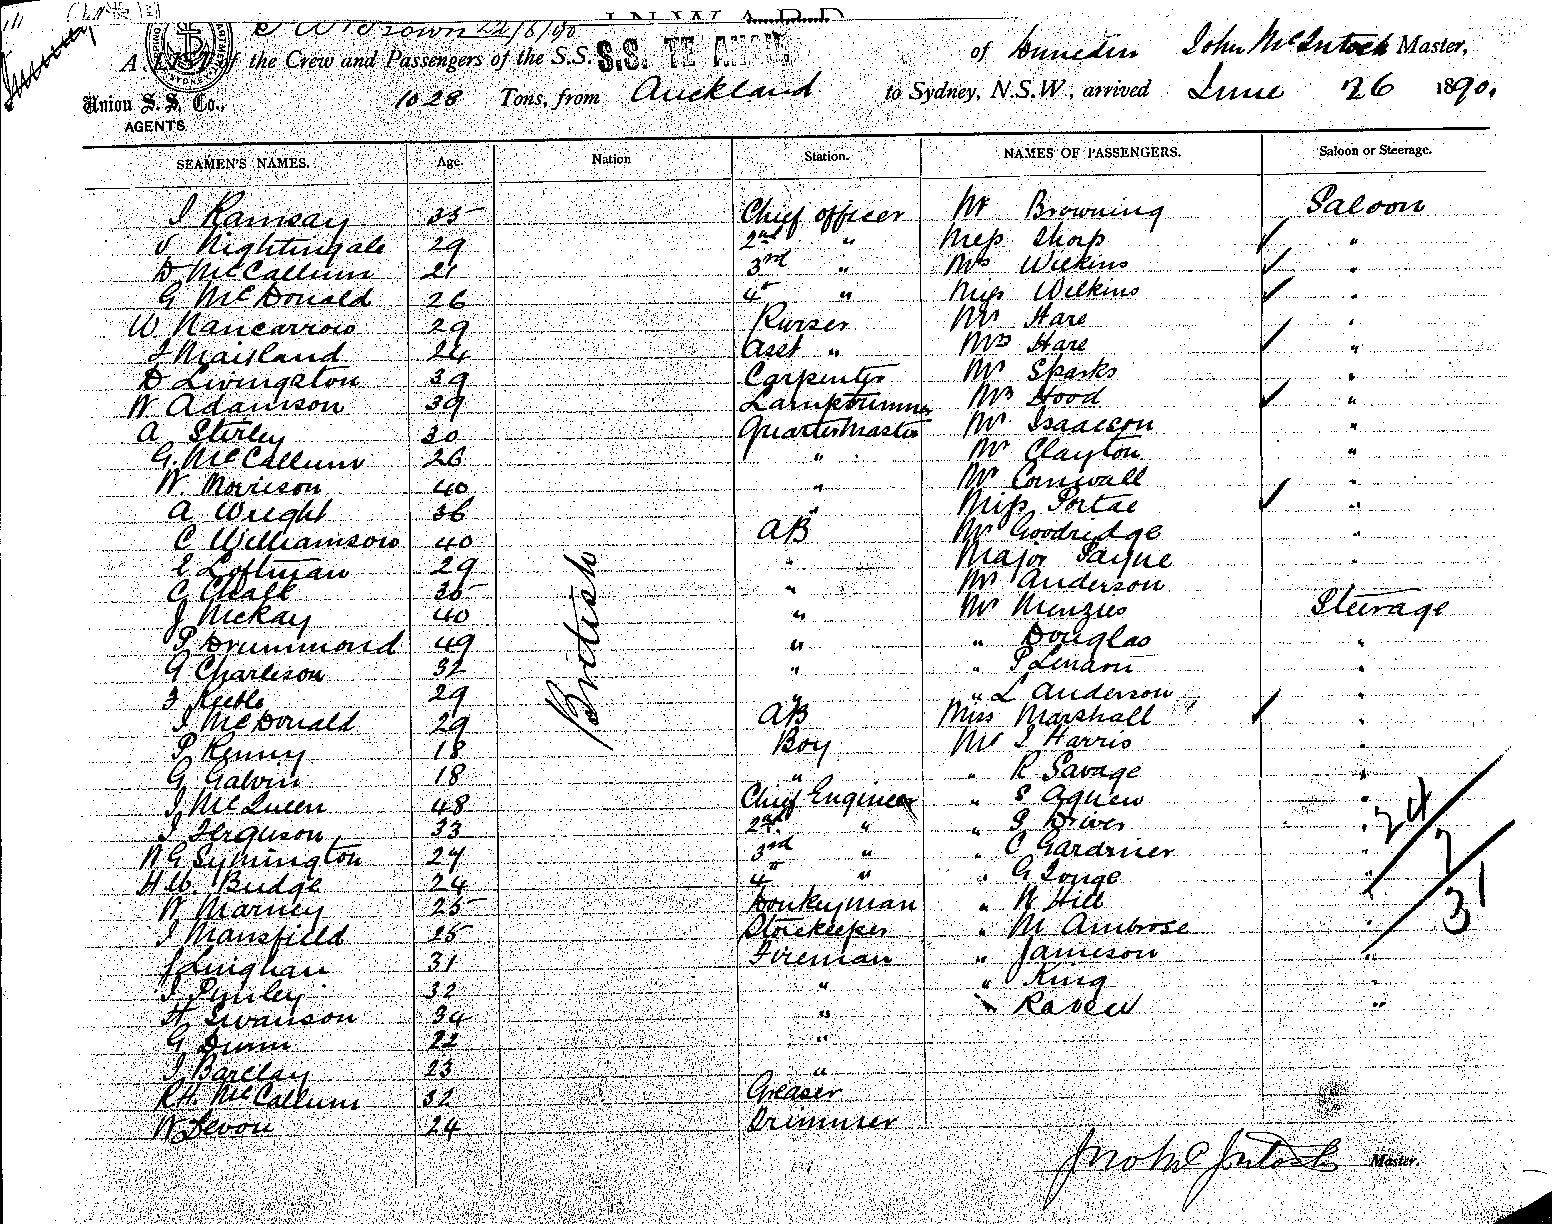 INWARD
A LIST of the Crew and Passengers of the S.S. S.S. TE ANAU of Dunedin John McIntosh Master,
Union S. S. Co., AGENTS 1028 Tons, from Auckland to Sydney, N.S.W., arrived June 26 1890.
SEAMEN'S NAMES. Age. Nation Station. NAMES OF PASSENGERS. Saloon or Steerage.
J Ramsay 35 Chief officer Mr Browning Saloon
Nightingale 29 2nd " Miss Sharp "
D McCallum 21 3rd " Mrs Wilkins "
G McDonald 26 4th " Miss Wilkins "
W Nancarrow 29 Purser Mr Hare "
J Maitland 24 Asst " Mrs Hare "
D Livingston 39 Carpenter Mr Sparks "
W Adamson 39 Lamptrimmer Mrs Hood "
A Stirley 30 Quartermaster Mr Isaacson "
G. McCallum 26 " Mr Clayton "
W Morrison 40 " Mr Cornwall "
A Wright 36 " Miss "
C Williamson 40 AB Mr Goodridge "
E Loftman 29 " Major Payne "
C 35 " Mr Anderson
J McKay 40 " Mr Menzies Steerage
P Drummond 49 " " Douglas "
G Charleson 32 " " P "
29 " " L Anderson "
J McDonald 29 AB Miss Marshall "
P Kenny 18 Boy Mr J Harris "
G Galvin 18 " " R Savage "
J McQueen 48 Chief Engineer " S Agnew "
J Ferguson 33 2nd " " "
W G Symington 27 3rd " " C Gardner "
Budge 24 4th " " G "
W Marney 25 Donkeyman " W Hill "
J Mansfield 25 Storekeeper " M Ambrose "
J 31 Fireman " Jamieson "
32 " " King "
H Swanson 34 " " Raven "
G Dunn 22 "
J Barclay 23 "
R H McCallum 32 Greaser
W Devon 24 Trimmer
British
24
7
31
Jno McIntosh Master.